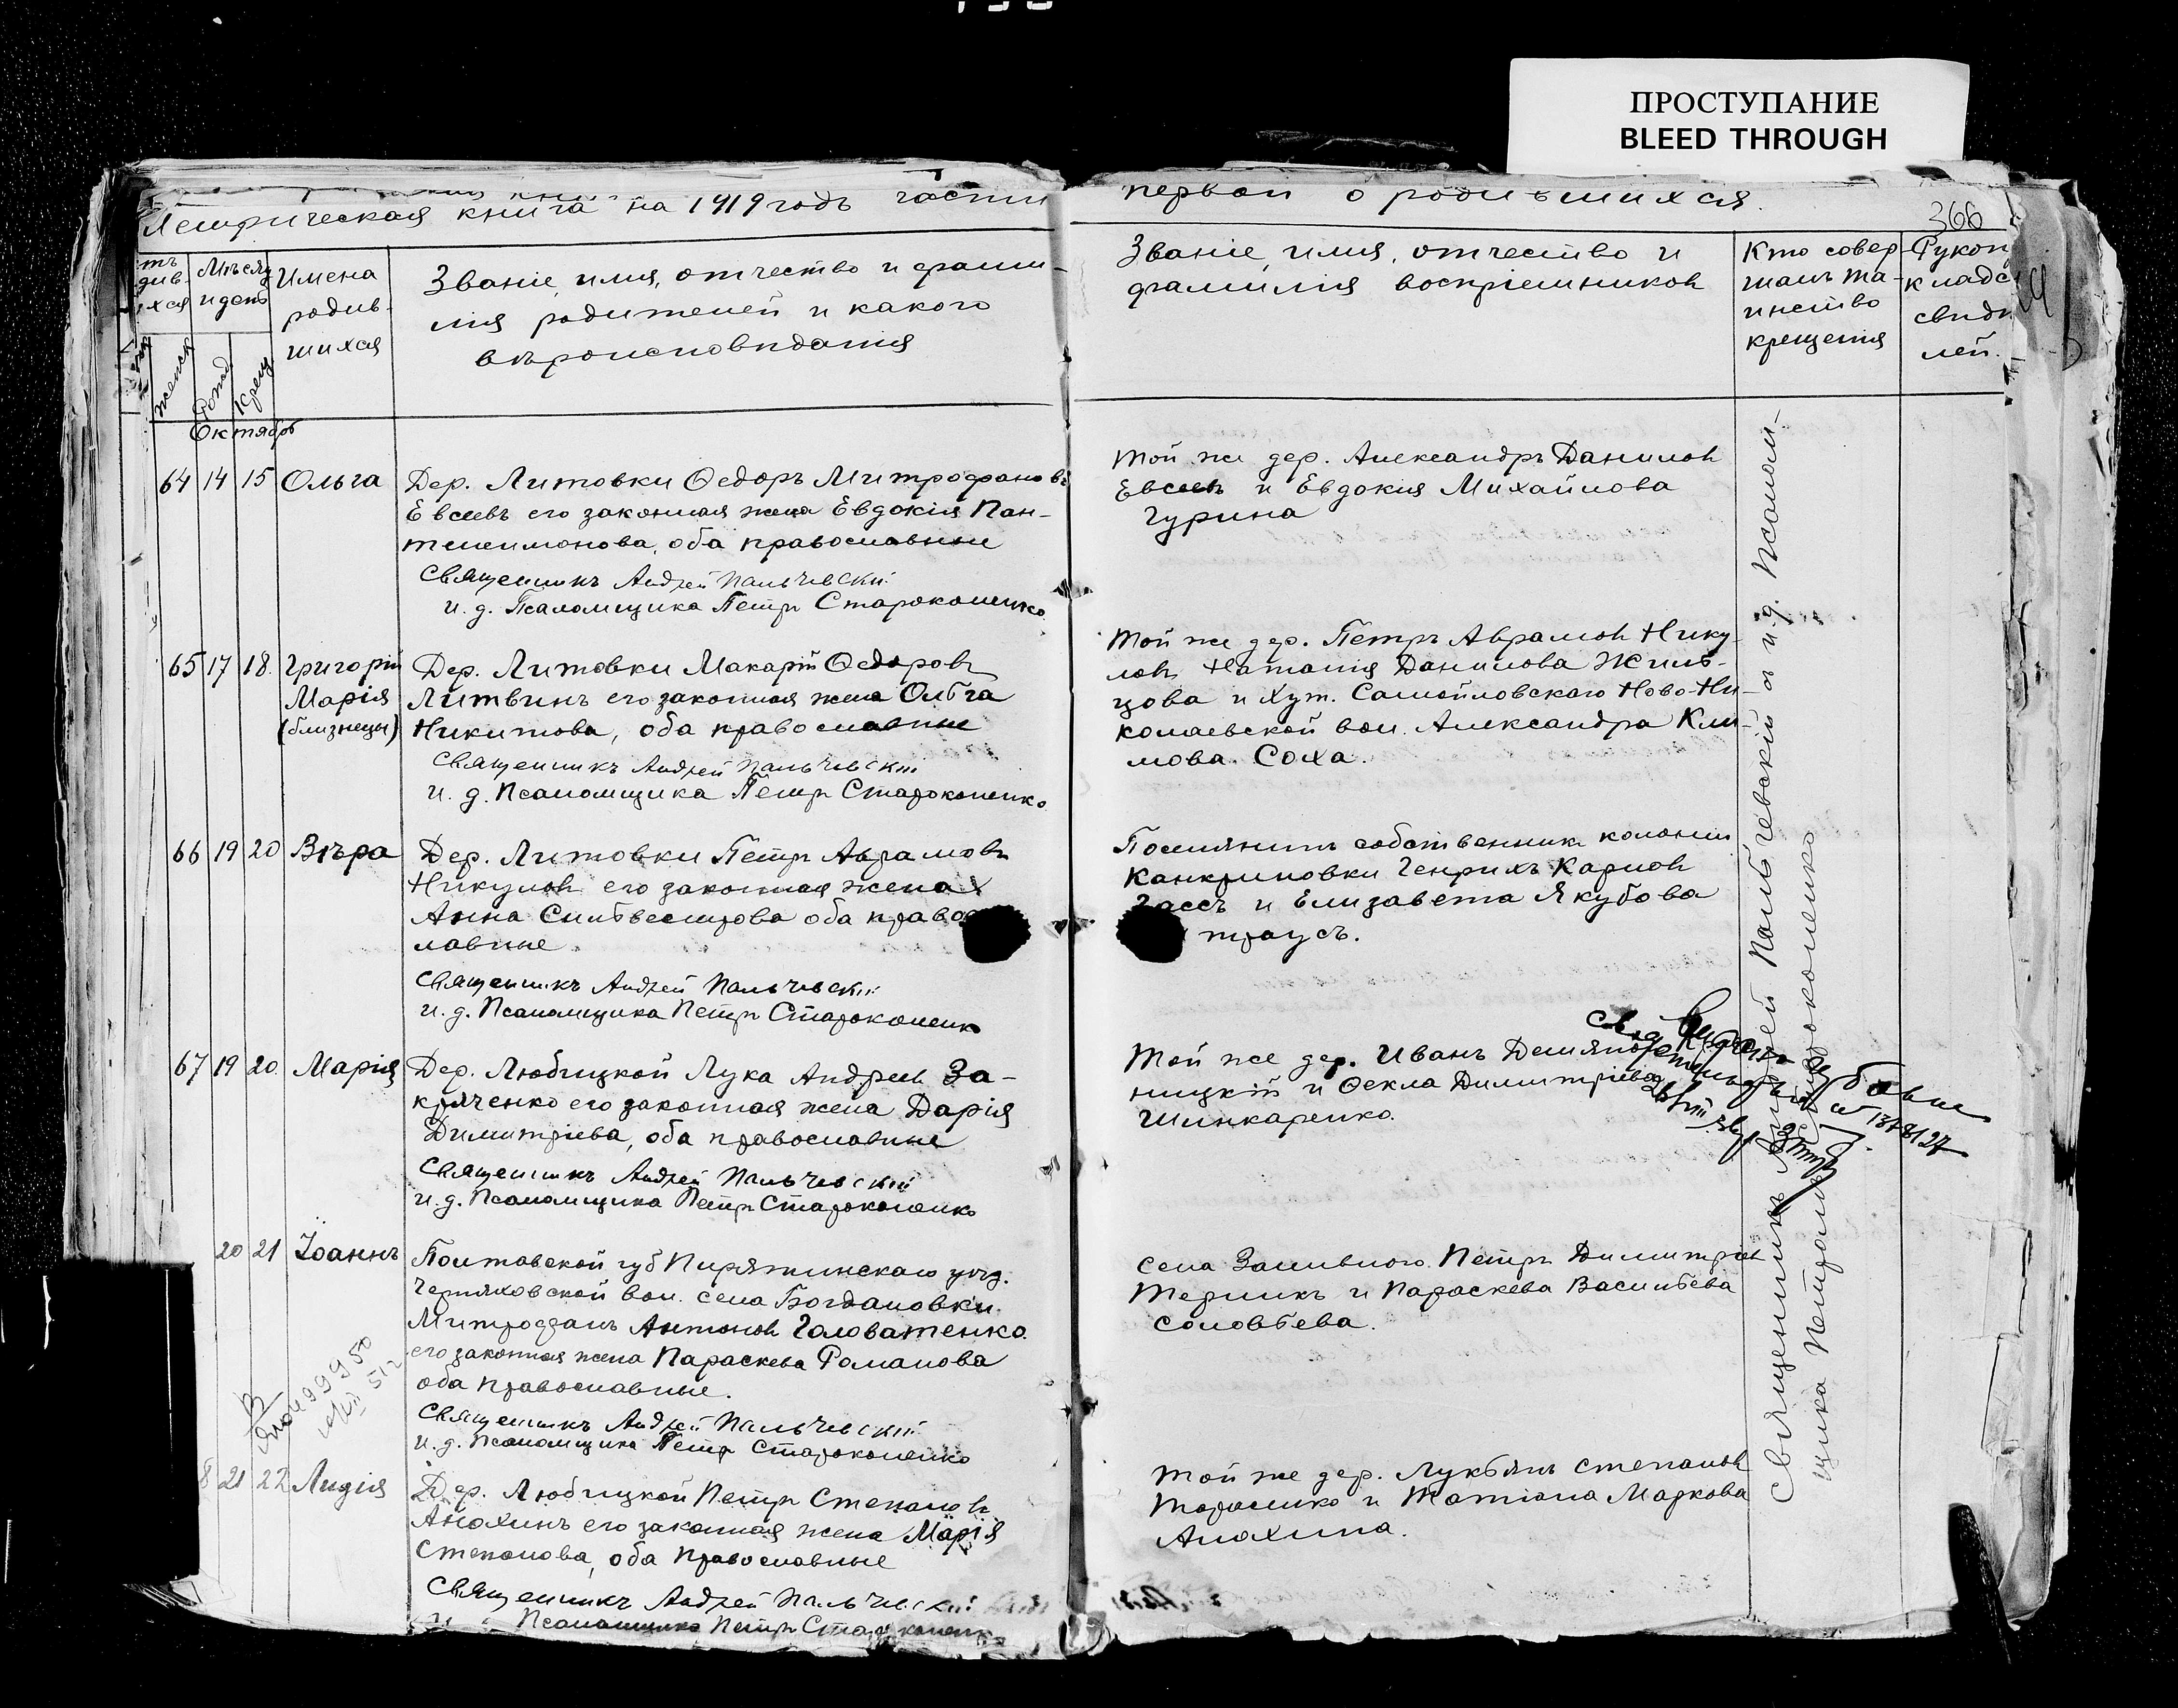 ПРОСТУПАНИЕ
BLEED THROUGH
Метрическая книга на 1919 годъ части первой о родившихся.
366
Мѣсяц
и день
Имена
родив-
шихся
Званіе, имя, отчество и фами-
лія родителей и какого
вѣроисповѣданія
Званіе, имя, отчество и
фамилія воспріемников
Кто совер
шалъ та-
инство
крещенія
Рукоп
кладс
свидѣ
лей.
женск
Рожд
Крещ
Октябрь
64 14 15 Ольга
Дер. Литовки Ѳедоръ Митрофановъ
Евсеевъ его законная жена Евдокія Пан-
телеимонова, оба православные
Священникъ Андрей Пальчевскій
и. д. Псаломщика Петръ Староконенко
Той же дер. Александръ Данилов
Евсеевъ и Евдокия Михайлова
Гурина
65 17 18. Григорій
Марія
(близнецы)
Дер. Литовки Макарій Ѳедоровъ
Литвинъ его законная жена Ольга
Никитова, оба православные
Священникъ Андрей Пальчевскій
и. д. Псаломщика Петръ Староконенко
Той же дер. Петръ Аврамов Нику-
лов, Наталія Данилова Жиль-
цова и хут. Самойловскаго Ново-Ни-
колаевской вол. Александра Кли-
мова Соха.
66 19 20 Вѣра
Дер. Литовки Петръ Аврамовъ
Никулов его законная жена
Анна Сильвестрова оба право
лавные
Священникъ Андрей Пальчевскій
и. д. Псаломщика Петръ Староконенко
Поселянинъ собственникъ колоніи
Канкриновки Генрихъ Карлов
Гассъ и Елизавета Якубова
траусъ.
67 19 20. Марія
Дер. Любицкой Лука Андреев За-
кряченко его законная жена Дарія
Димитріева, оба православные
Священникъ Андрей Пальчевскій
и. д. Псаломщика Петръ Староконенко
Той же дер. Иванъ
ницкій и Ѳекла Димитріева
Шинкаренко.
20 21 Іоаннъ
Полтавской губ Пирятинскаго уѣзд.
Черняховской вол. села Богдановки
Митрофанъ Антонов Головатенко
его законная жена Параскева Романова
оба православные.
Священникъ Андрей Пальчевскій
и. д. Псаломщика Петръ Староконенко
села Заливного Петръ Димитріев
Терникъ и Параскева Васильева
Соловьева.
8 21 22 Лидія
Дер. Любицкой Петръ Степановъ
Анохинъ его законная жена Марія
Степанова, оба православные
Священникъ Андрей Пальчевскій
Псаломщика Петръ Староконенко
Той же дер. Лукьянъ Степанов
Тарасенко и Татіана Маркова
Анохина.
Священникъ Андрей Пальчевскій и и.д. Псалом-
щика Петръ Староконенко